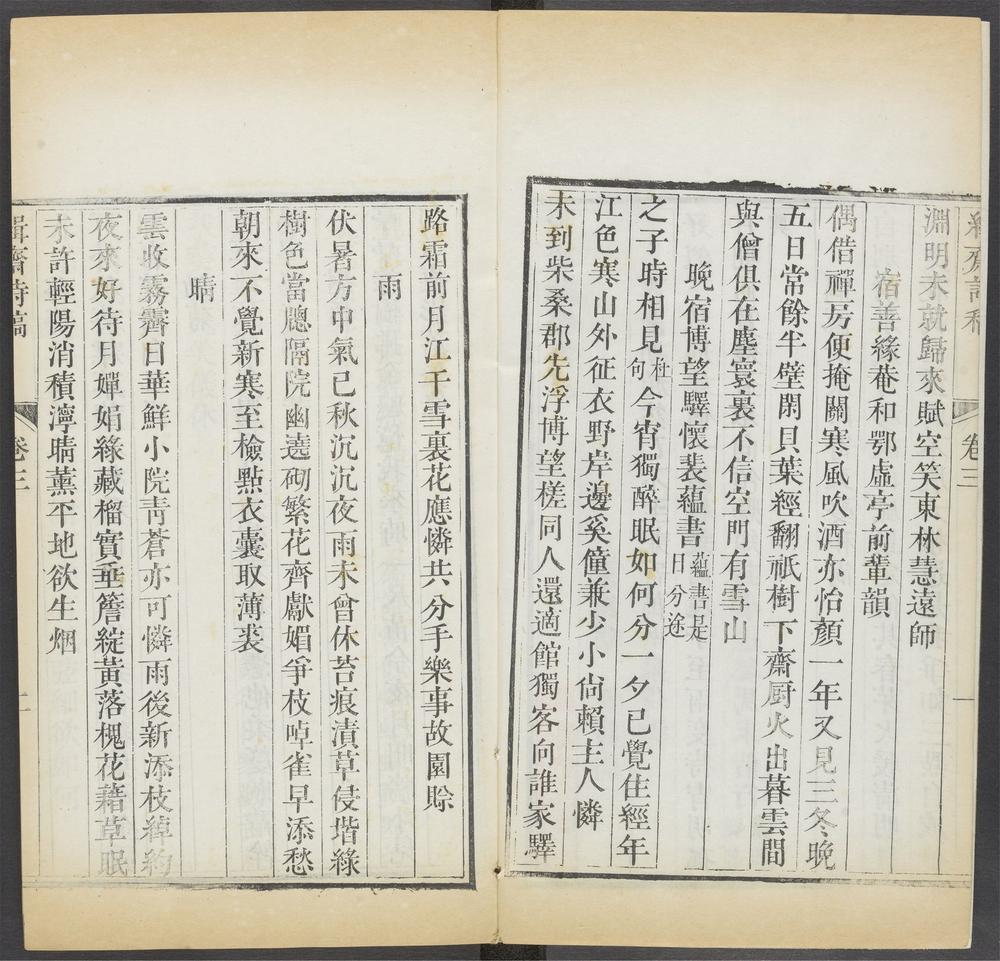 緝齋詩稿 卷三 一
淵明未就歸來賦空笑東林慧遠師
宿善緣菴和鄂虛亭前輩韻
偶借禪房便掩關寒風吹酒亦怡顏一年又見三冬晚
五日常餘半壁閑貝葉經翻祇樹下齋厨火出暮雲間
與僧俱在塵寰裏不信空門有雪山
晚宿博望驛懷裴蘊書蘊書是日分途
之子時相見杜句今宵獨醉眠如何分一夕已覺住經年
江色寒山外征衣野岸邊奚僮兼少小尙賴主人憐
未到柴桑郡先浮博望槎同人還適館獨客向誰家驛
路霜前月江干雪裏花應憐共分手樂事故園賒
雨
伏暑方中氣已秋沉沉夜雨未曾休苔痕漬草侵堦綠
樹色當牕隔院幽遶砌繁花齊獻媚爭枝啅雀早添愁
朝來不覺新寒至檢點衣囊取薄裘
晴
雲收霧霽日華鮮小院靑蒼亦可憐雨後新添枝綽約
夜來好待月嬋娟綠藏榴實垂簷綻黃落槐花藉草眠
未許輕陽消積濘晴薰平地欲生烟
緝齋詩稿 卷三 二